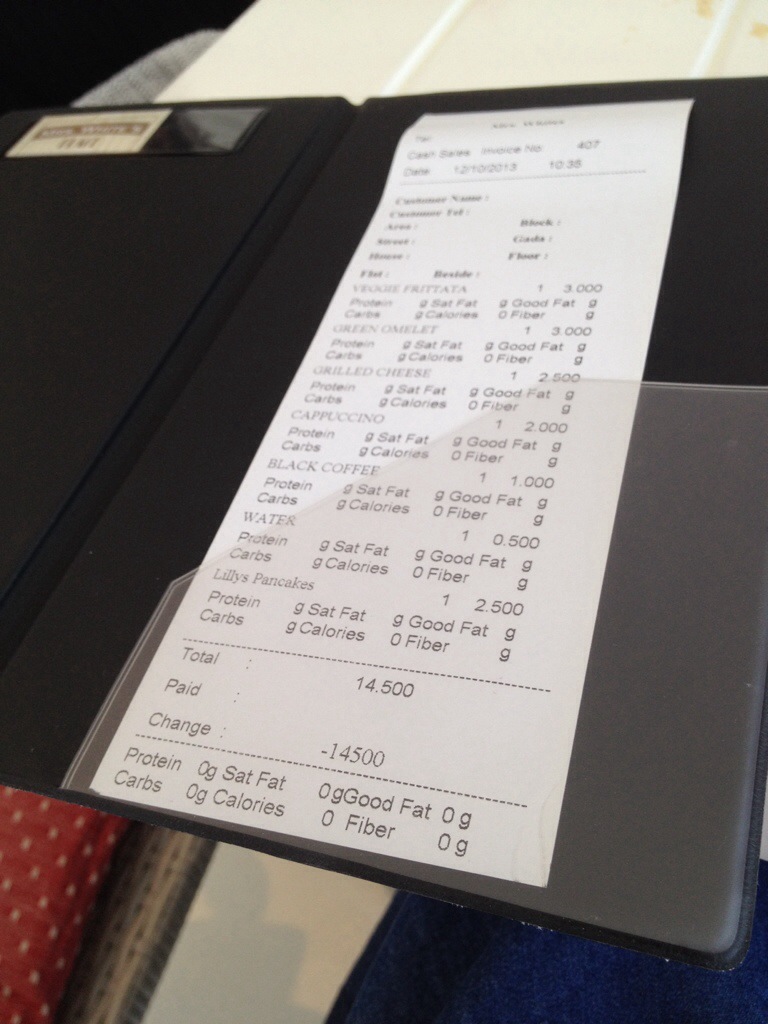 Mrs. White's
Tel
Cash Sales Invoice No: 407
Date 12/10/2013 10:35
Customer Name :
Customer Tel :
Area : Block :
Street : Gada :
House : Floor :
Flat : Beside :
VEGGIE FRITTATA 1 3.000
Protein g Sat Fat g Good Fat g
Carbs g Calories 0 Fiber g
GREEN OMELET 1 3.000
Protein g Sat Fat g Good Fat g
Carbs g Calories 0 Fiber g
GRILLED CHEESE 1 2.500
Protein g Sat Fat g Good Fat g
Carbs g Calories 0 Fiber g
CAPPUCCINO 1 2.000
Protein g Sat Fat g Good Fat g
Carbs g Calories 0 Fiber g
BLACK COFFEE 1 1.000
Protein g Sat Fat g Good Fat g
Carbs g Calories 0 Fiber g
WATER 1 0.500
Protein g Sat Fat g Good Fat g
Carbs g Calories 0 Fiber g
Lillys Pancakes 1 2.500
Protein g Sat Fat g Good Fat g
Carbs g Calories 0 Fiber g
Total : 14.500
Paid :
Change : -14500
Protein 0g Sat Fat 0gGood Fat 0 g
Carbs 0g Calories 0 Fiber 0 g